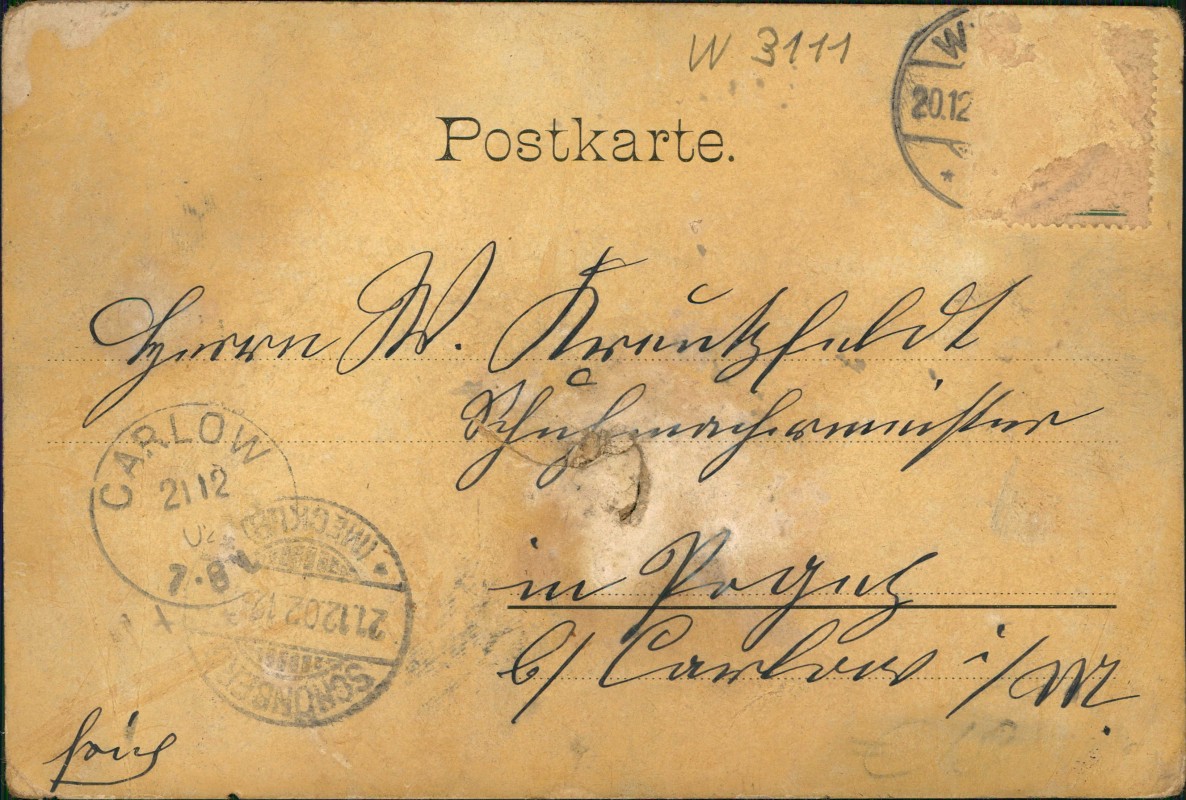 W 3111
W
20.12
Postkarte.
Herrn W. Kreutzfeldt
Schuhmachermeister
in Pogez
b/ Carlow i/M.
CARLOW
21 12
02
7-8
(MECKLB)
21.12.02 12
SCHÖNBE